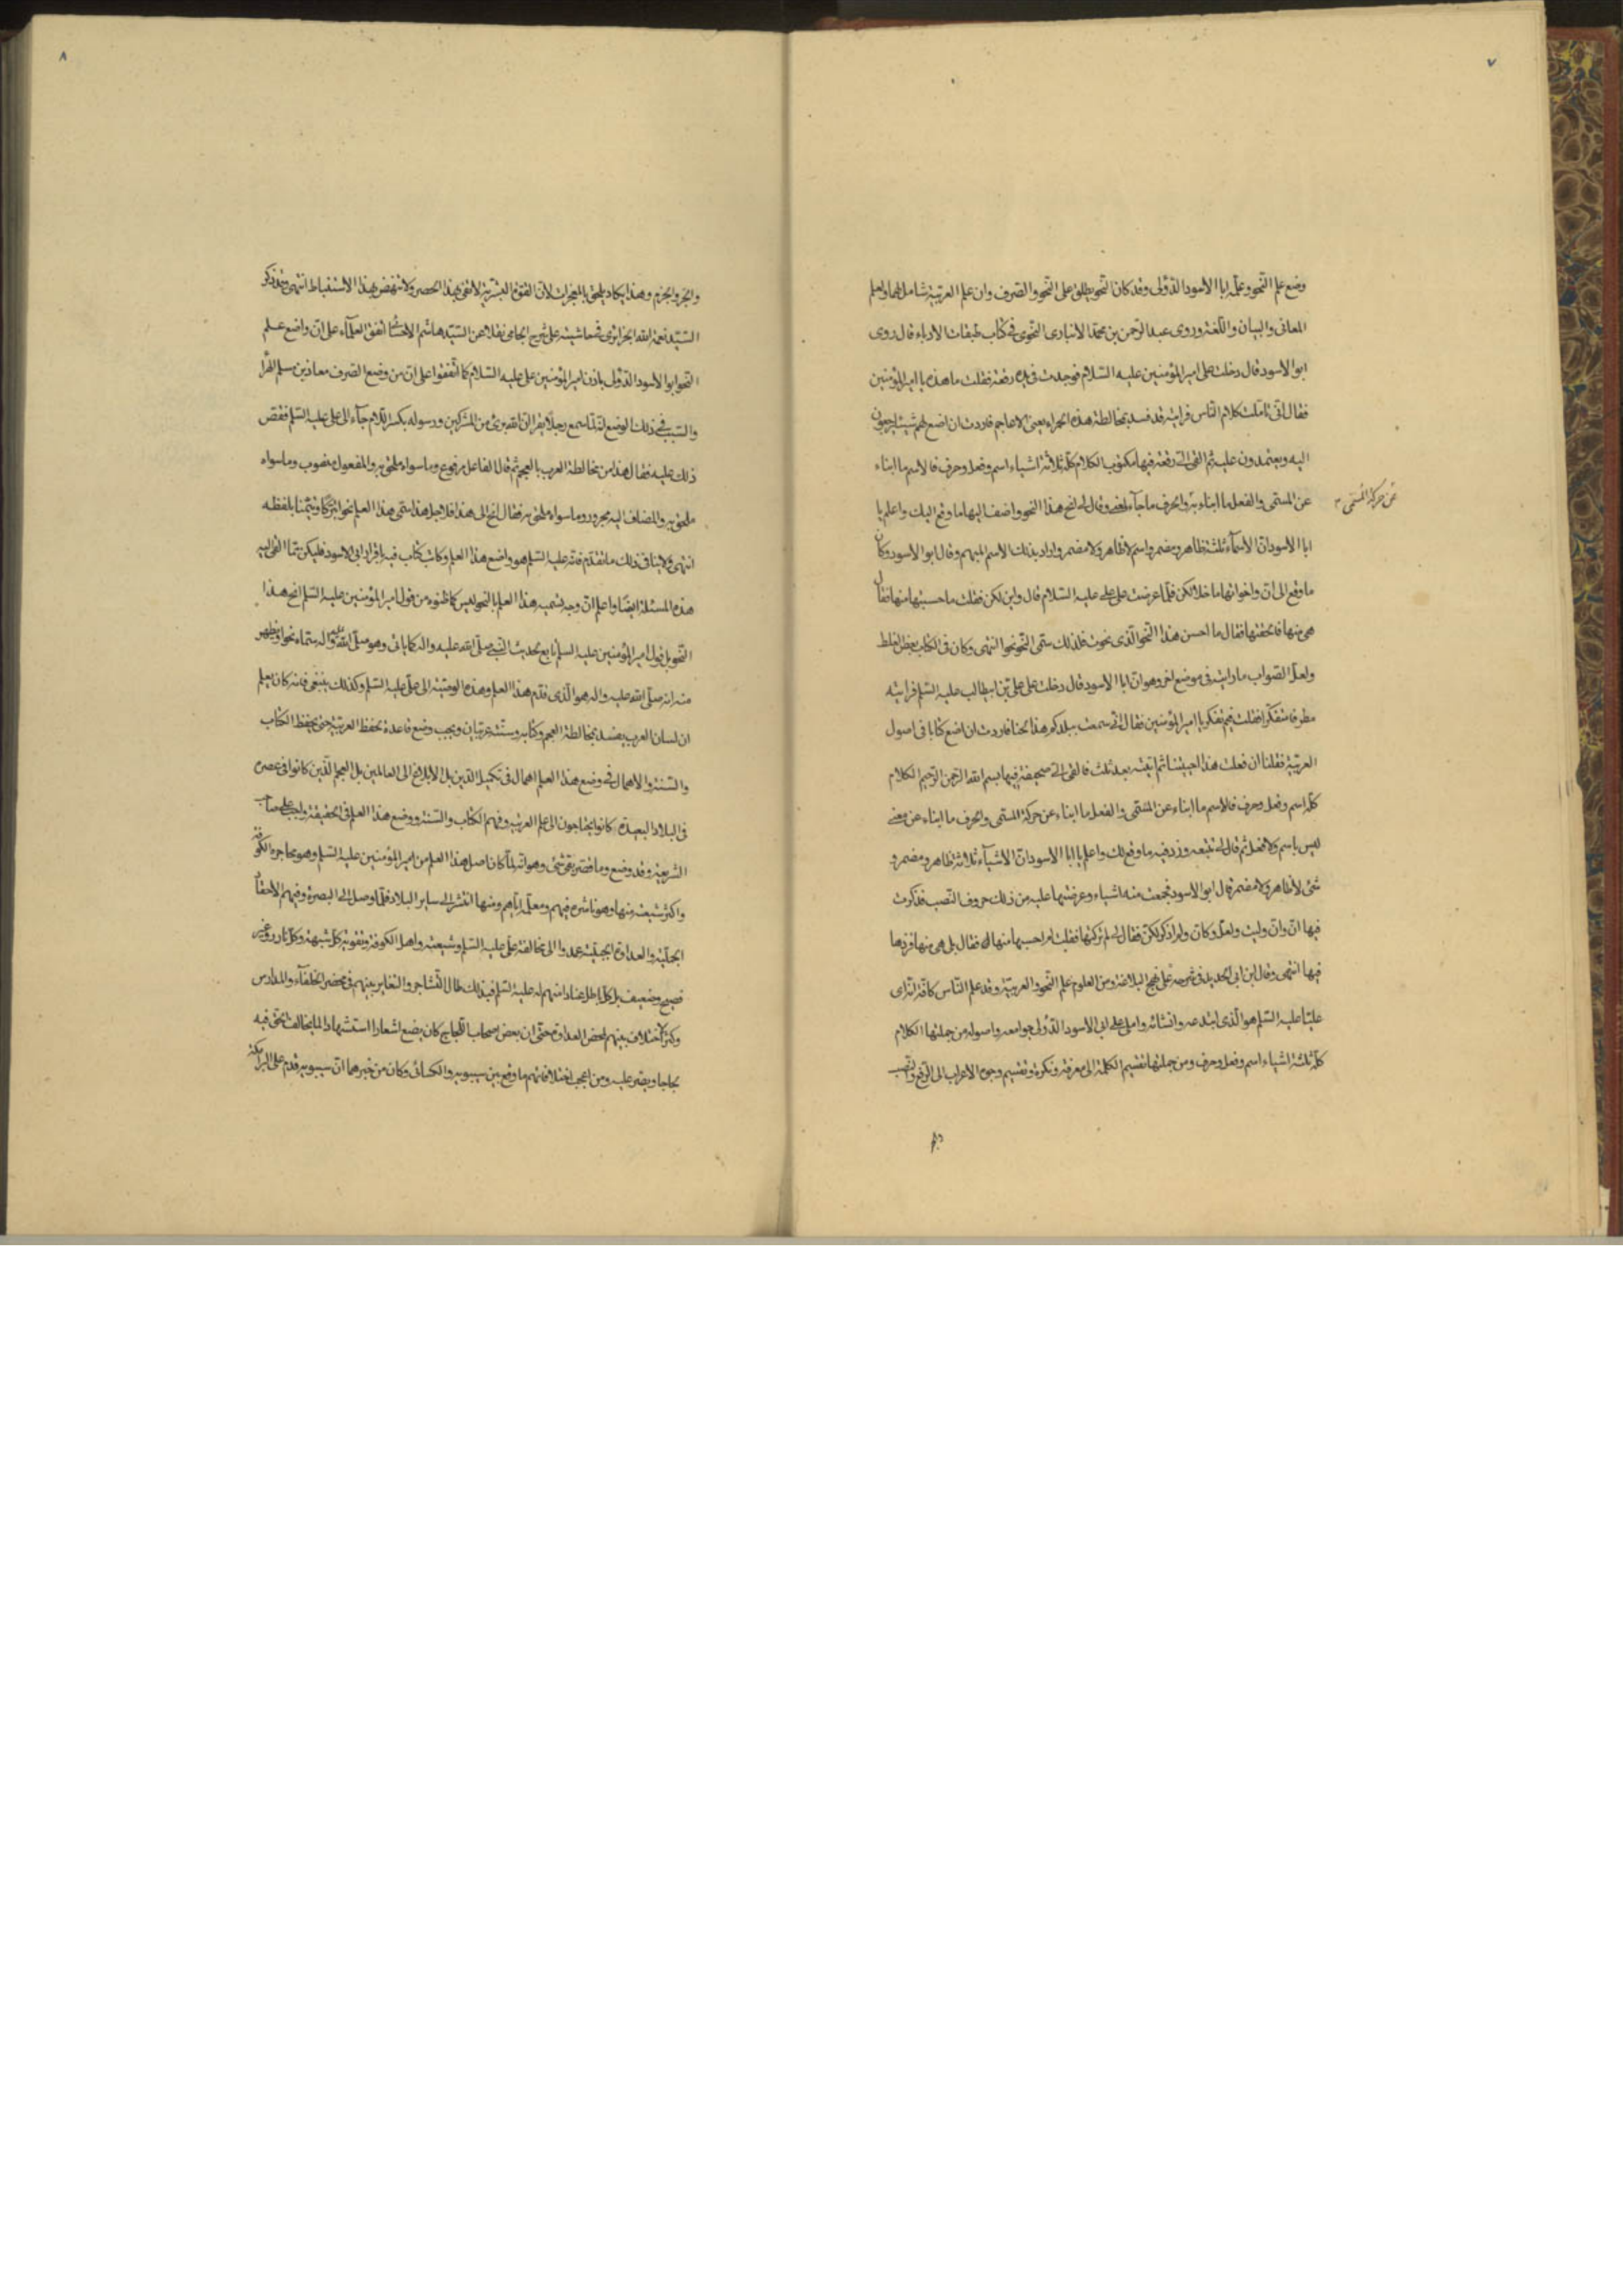 ٧
وضع علم النحو وعلّمه ابا الاسود الدؤلى وقد كان النحو يطلق على النحو والصرف وان علم العربية شامل لهما ولعلم
المعانى والبيان واللّغة وروى عبد الرّحمن بن محمّد الانبارى النحوى فى كتاب طبقات الادباء قال روى
ابو الاسود قال دخلت على امير المؤمنين عليه السّلام فوجدت فى يده رقعة فقلت ما هذه يا امير المؤمنين
فقال انّى تاملت كلام النّاس فرايته قد فسد بمخالطة هذه الحمراء يعنى الاعاجم فاردت ان اضع لهم شيئا يرجعون
اليه ويعتمدون عليه ثم القى الىّ رقعة فيها مكتوب الكلام كلّه ثلاثة اشياء اسم وفعل وحرف فالاسم ما انباء
عن المسمّى والفعل ما انباء به والحرف ما جآء لمعنى وقال لى انح هذا النحو واضف اليها ما وقع اليك واعلم يا
عن حركة المسمى
ابا الاسود انّ الاسمآء ثلثة ظاهر ومضمر واسم لا ظاهر ولا مضمر واراد بذلك الاسم المبهم وقال ابو الاسود وكان
ما وقع الى انّ واخواتها ما خلا لكن فلمّا عرضت على على عليه السّلام قال واين لكن فقلت ما حسبتها منها فقال
هى منها فالحقتها فقال ما احسن هذا النّحو الّذى نحوت فلذلك سمّى النّحو نحوا انتهى وكان فى الكتاب بعض الغلط
ولعلّ الصّواب ما رايته فى موضع اخر وهو انّ ابا الاسود قال دخلت على علىّ بن ابيطالب عليه السّلم فرايته
مطرقا متفكّرا فقلت فيم تفكر يا امير المؤمنين فقال انّى سمعت ببلدكم هذا لحنا فاردت ان اضع كتابا فى اصول
العربيّة فقلنا ان فعلت هذا احييتنا ثم اتيته بعد ثلث فالقى الىّ صحيفة فيها بسم الله الرّحمن الرّحيم الكلام
كلّه اسم وفعل وحرف فالاسم ما انباء عن المسمّى والفعل ما انباء عن حركة المسمّى والحرف ما انباء عن معنى
ليس باسم ولا فعل ثم قال لى تتبعه وزد فيه ما وقع لك واعلم يا ابا الاسود انّ الاشيآء ثلاثة ظاهر ومضمر و
شئ لا ظاهر ولا مضمر قال ابو الاسود فجمعت منه اشياء وعرضتها عليه من ذلك حروف النّصب فذكرت
فيها انّ وانّ وليت ولعلّ وكانّ ولم اذكر لكنّ فقال لى لم تركتها فقلت لم احسبها منها فقال بل هى منها فزدها
فيها انتهى وقال ابن ابى الحديد فى شرحه على نهج البلاغة ومن العلوم علم النّحو والعربيّة وقد علم النّاس كافة انّ
عليّا عليه السّلم هو الّذى ابتدعه وانشائه واملى على ابى الاسود الدّؤلى جوامعه واصوله من جملتها الكلام
كلّه ثلثة اشياء اسم وفعل وحرف ومن جملتها تقسيم الكلمة الى معرفة ونكرة وتقسيم وجوه الاعراب الى الرّفع والنّصب
٨
والجرّ والجزم وهذا يكاد يلحق بالمعجزات لانّ القوّة البشريّة لا تفى بهذا الحصر ولا تنهض بهذا الاستنباط انتهى
السّيّد نعمة الله الجزائرى فى حاشيته على شرح الجامى نقلا عن السّيّد هاشم اتفق العلمآء على انّ واضع علم
النحو ابو الاسود الدّؤلى باذن امير المؤمنين على عليه السّلام كما اتّفقوا على انّ من وضع الصّرف معاذ بن مسلم الهرّا
والسّبب فى ذلك الوضع انّه لمّا سمع رجلا يقرا انّ الله برئ من المشركين ورسوله بكسر اللّام جآء الى على عليه السّلم فقصّ
ذلك عليه فقال هذا من مخالطة العرب بالعجم ثم قال الفاعل مرفوع وما سواه ملحق به والمفعول منصوب وما سواه
ملحق به والمضاف اليه مجرور وما سواه ملحق به فقال انح الى هذا فلاجل هذا سمّى هذا العلم نحوا تبرّكا وتيمّنا بلفظه
انتهى ولا ينافى ذلك ما تقدّم فانّه عليه السّلم هو واضع هذا العلم
هذه المسئلة ايضا واعلم انّ وجه تسمية هذا العلم بالنحو ليس كما ظنوه من قول امير المؤمنين عليه السّلم انح هذا
النّحو بل قول امير المؤمنين عليه السلم تابع لحديث النّبى صلّى الله عليه واله كما ياتى وهو صلّى الله عليه واله سمّاه نحوا ويظهر
منه انه صلّى الله عليه واله هو الّذى قدّم هذا العلم وهذه الوصيّة الى علىّ عليه السّلم وكذلك ينبغى فانه كان يعلم
ان لسان العرب يفسد بمخالطة العجم وكتابه وسنّته عربيّان ويجب وضع قاعدة تحفظ العربيّة حتى يحفظ الكتاب
والسّنّة والاهمال فى وضع هذا العلم اهمال فى تكميل الدّين بل الابلاغ الى العالمين بل العجم الّذين كانوا فى عصره
فى البلاد البعيدة كانوا يحتاجون الى علم العربيّة وفهم الكتاب والسّنّة ووضع هذا العلم فى الحقيقة واجب على صاحب
الشّريعة وقد وضع وما قصّر بقى شئ وهو انّه لمّا كان اصل هذا العلم من امير المؤمنين عليه السّلم وهو مهاجره الكوفة
واكثر شيعته منها وهو ناشره فيهم ومعلّمه ايّاهم ومنها انتشر الى ساير البلاد فلمّا وصل الى البصرة وفيهم الاحقاد
الجبليّة والعداوة الجبليّة عمدوا الى مخالفة علىّ عليه السّلم وشيعته واهل الكوفة وتقوية كلّ شبهة
قبيح وضعيف بل كلّ باطل عنادا منهم له عليه السّلم فبذلك طال التّشاجر والتّغاير بينهم فى محضر الخلفآء والمدارس
وكثر الاختلاف بينهم لمحض العداوة حتّى ان بعض اصحاب اللّجاج كان يضع اشعارا استشهادا لما يخالف الحقّ فيه
لجاجا ويصرّ عليه ومن اعجب اختلافاتهم ما وقع بين سيبويه والكسائى وكان من خبرهما انّ سيبويه قدم على البرامكة